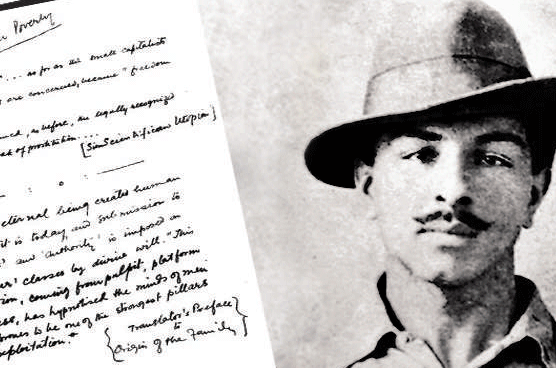 Poverty
... as far as the small capitalists
are concerned, became "freedom
as before, the legally recognized
of prostitution ....
[Sim Scientifican Utopia]
eternal being creates human
it is today, and submission to
and 'authority' is imposed on
classes by divine will." This
coming from pulpit, platform
has hypnotised the minds of men
to be one of the strongest pillars
exploitation."
{ Translator's Preface
to
Origin of the Family }